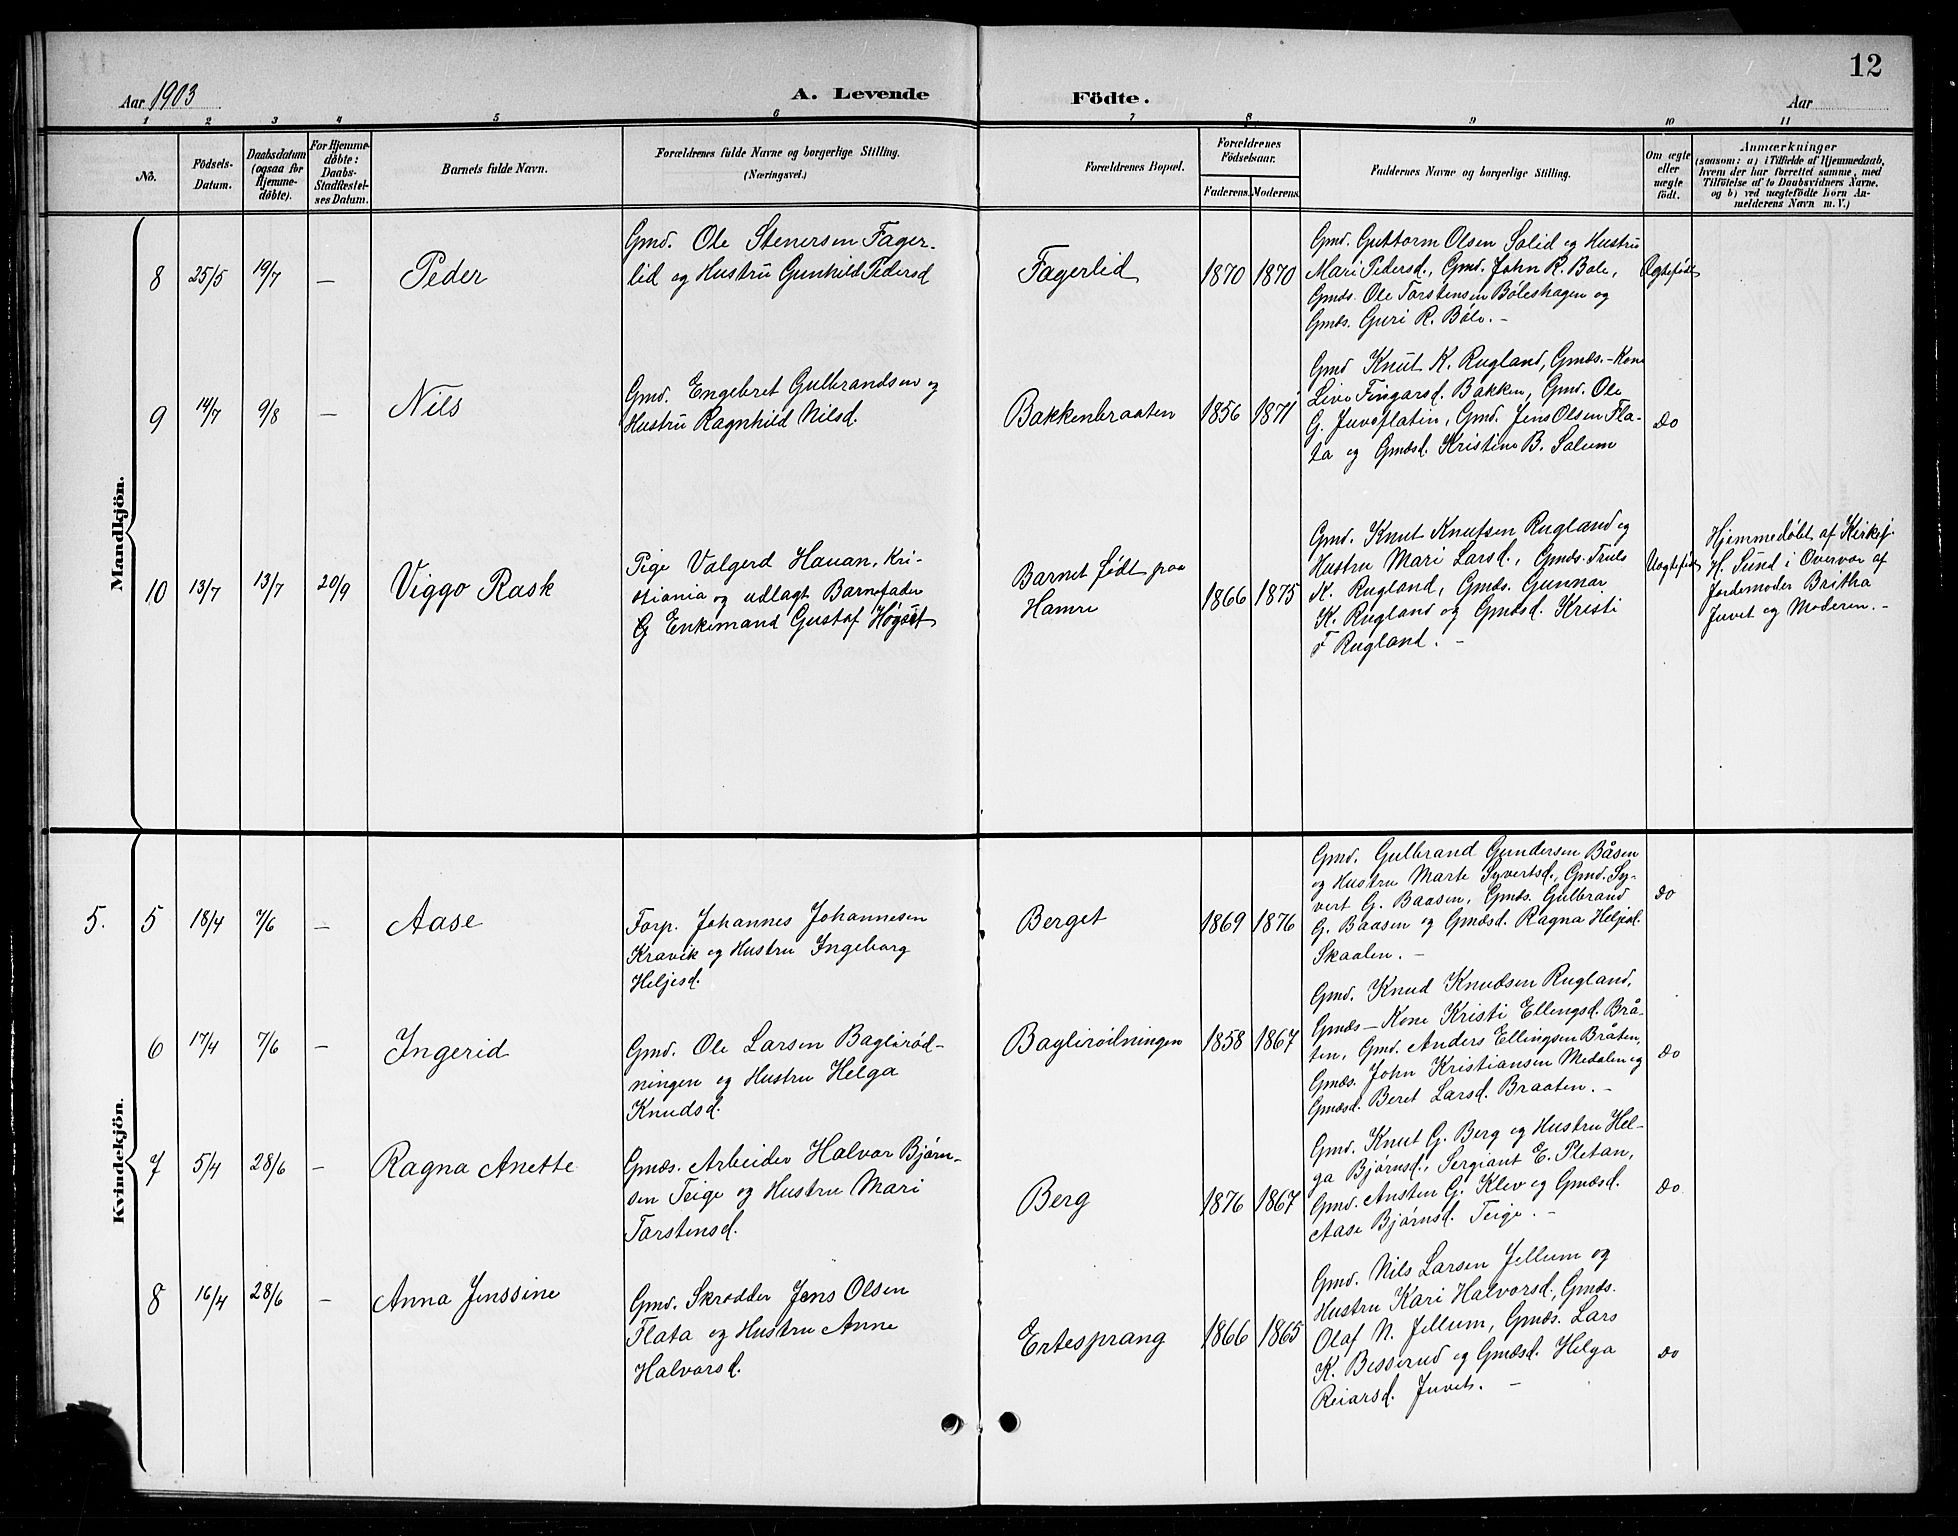 12
Aar 1903
A. Levende
Födte.
Aar
1 2 3 4 5 6 7 8 9 10 11
No.
Födsels-
Datum.
Daabsdatum
(ogsaa for
Hjemme-
döbte).
For Hjemme-
döbte:
Daabs-
Stadfæstel-
ses Datum.
Barnets fulde Navn.
Forældrenes fulde Navne og borgerlige Stilling.
(Næringsvei.)
Forældrenes Bopæl.
Forældrenes
Födselsaar.
Faderens. Moderens.
Faddernes Navne og borgerlige Stilling.
Om ægte
eller
uægte
födt.
Anmærkninger
(saasom: a) i Tilfælde af Hjemmedaab,
hvem der har forrettet samme, med
Tilföielse af to Daabsvidners Navne,
og b) ved uægtefödte børn An-
melderens Navn m. V.)
Mandkjön.
8 25/5 19/7 — Peder
Gmd. Ole Stenersen Fager-
lid og Hustru Gunhild Pedersd
Fagerlid 1870 1870
Gmd. Guttorm Olsen Solid og Hustru
Mari Pedersd., Gmd. John R. Bøle,
Gmds. Ole Torstensen Bøleshagen og
Gmds. Guri R. Bøle. —
Ægtefødt
9 14/7 9/8 — Nils
Gmd. Engebret Gulbrandsen og
Hustru Ragnhild Nilsd.
Bakkenbraaten 1856 1871
Gmd Knut K. Rugland, Gmds.-Kone
Live Fingarsd. Bakken, Gmd. Ole
G. Juvsflatin, Gmd. Jens Olsen Fla-
ta og Gmdsd. Kristine B. Solum
do
10 13/7 13/7 20/9 Viggo Rask
Pige Valgerd Hauan, Kri-
stiania og udlagt Barnefader
G Enkemand Gustaf Høgset
Barnet født paa
Hamre
1866 1875
Gmd. Knut Knutsen Rugland og
Hustru Mari Larsd., Gmds. Truls
K. Rugland, Gmds. Gunnar
K. Rugland og Gmdsd. Kristi
T Rugland. —
Uægtefødt
Hjemmedøbt af Kirkesj.
H. Sund i Overvær af
Jordemoder Britha
Juvet og Moderen. —
Kvindekjön.
5. 5 18/4 7/6 — Aase
Forp. Johannes Johannesen
Kravik og Hustru Ingeborg
Heljesd.
Berget 1869 1876
Gmd. Gulbrand Gundersen Båsen
og Hustru Marte Syvertsd., Gmd. Sy-
vert G. Baasen, Gmds. Gulbrand
G. Baasen og Gmdsd. Ragna Heljesd.
Skaalen. —
do
6 17/4 7/6 — Ingerid
Gmd. Ole Larsen Baglirød-
ningen og Hustru Helga
Knudsd.
Baglirødningen 1858 1867
Gmd. Knud Knudsen Rugland,
Gmds-Kone Kristi Ellingsd. Brå-
ten, Gmd. Anders Ellingsen Bråten,
Gmds. John Kristiansen Medalen og
Gmdsd. Beret Larsd. Braaten. —
do
7 5/4 28/6 — Ragna Anette
Gmds. Arbeider Halvor Bjørn-
sen Teige og Hustru Mari
Torstensd.
Berg 1876 1867
Gmd. Knut G. Berg og Hustru Hel-
ga Bjørnsd., Sergiant E. Pletan,
Gmd. Ansten G. Klev og Gmdsd.
Aase Bjørnsd. Teige. —
do
8 16/4 28/6 — Anna Jenssine
Gmd. Skrædder Jens Olsen
Flata og Hustru Anne
Halvorsd.
Ertesprang 1866 1865
Gmd. Nils Larsen Jellum og
Hustru Kari Halvorsd., Gmds.
Olaf N. Jellum, Gmds. Lars
K. Besserud og Gmdsd. Helga
Reiarsd. Juvet. —
do